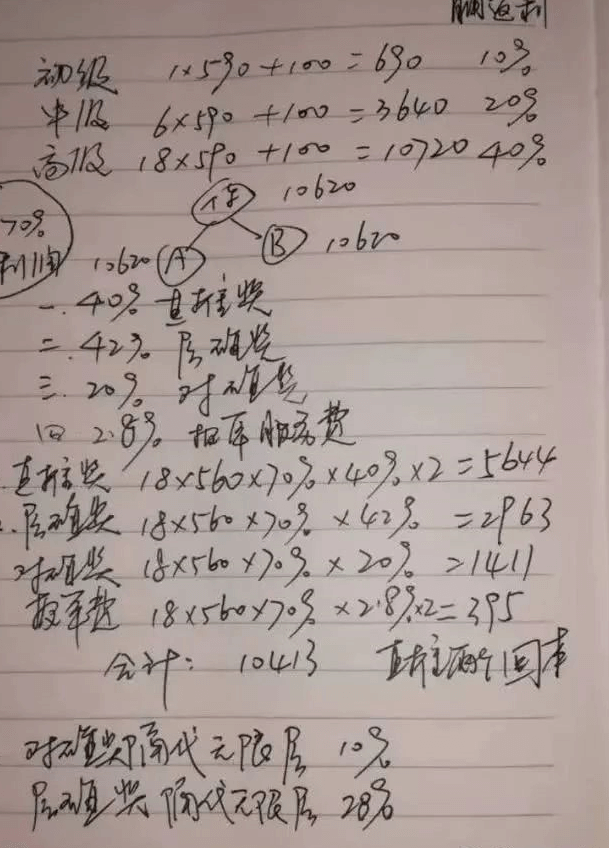 返利
初级 1×590+100=690 10%
中级 6×590+100=3640 20%
高级 18×590+100=10720 40%
10620
70%
利润 10620 A B 10620
一.40% 直推奖
二.42% 层碰奖
三.20% 对碰奖
四 2.8% 报单服务费
直推奖 18×560×70%×40%×2=5644
层碰奖 18×560×70%×42%=2963
对碰奖 18×560×70%×20%=1411
报单费 18×560×70%×2.8%×2=395
合计: 10413 直推两个回本
对碰奖隔代无限层 10%
层碰奖隔代无限层 28%